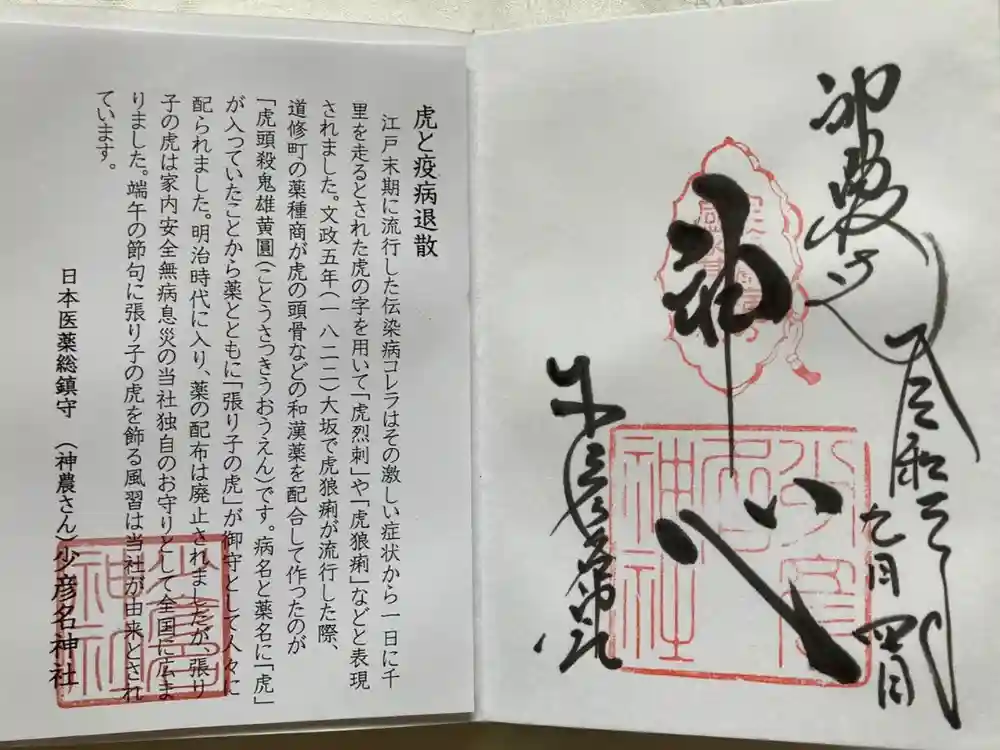 虎と疫病退散
江戸末期に流行した伝染病コレラはその激しい症状から一日に千
里を走るとされた虎の字を用いて「虎烈刺」や「虎狼痢」などと表現
されました。文政五年(一八二二)大坂で虎狼痢が流行した際、
道修町の薬種商が虎の頭骨などの和漢薬を配合して作ったのが
「虎頭殺鬼雄黄圓(ことうさっきうおうえん)です。病名と薬名に「虎」
が入っていたことから薬とともに「張り子の虎」が御守として人々に
配られました。明治時代に入り、薬の配布は廃止されましたが、張り
子の虎は家内安全無病息災の当社独自のお守りとして全国に広ま
りました。端午の節句に張り子の虎を飾る風習は当社が由来とされ
ています。
日本医薬総鎮守 (神農さん)少彦名神社
神心
令和三
九月
少彦名神社